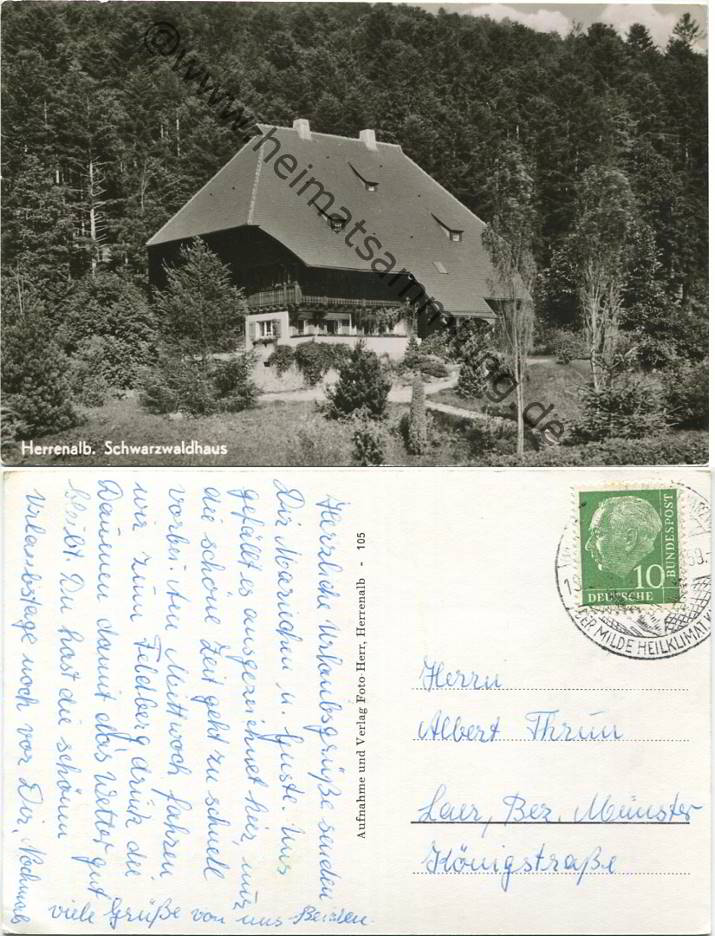 © www.heimatsammlung.de
Herrenalb. Schwarzwaldhaus
Herzliche Urlaubsgrüße senden
Dir Mariechen u. Guste. Uns
gefällt es ausgezeichnet hier, nur
die schöne Zeit geht zu schnell
vorbei. Am Mittwoch fahren
wir zum Feldberg, drück die
Daumen damit das Wetter gut
bleibt. Du hast die schönen
Urlaubstage noch vor Dir, Nochmals
viele Grüße von uns Beiden.
Aufnahme und Verlag Foto-Herr, Herrenalb - 105
10
DEUTSCHE
BUNDESPOST
DER MILDE HEILKLIMAT
Herrn
Albert Thrun
Laer, Bez. Münster
Königstraße